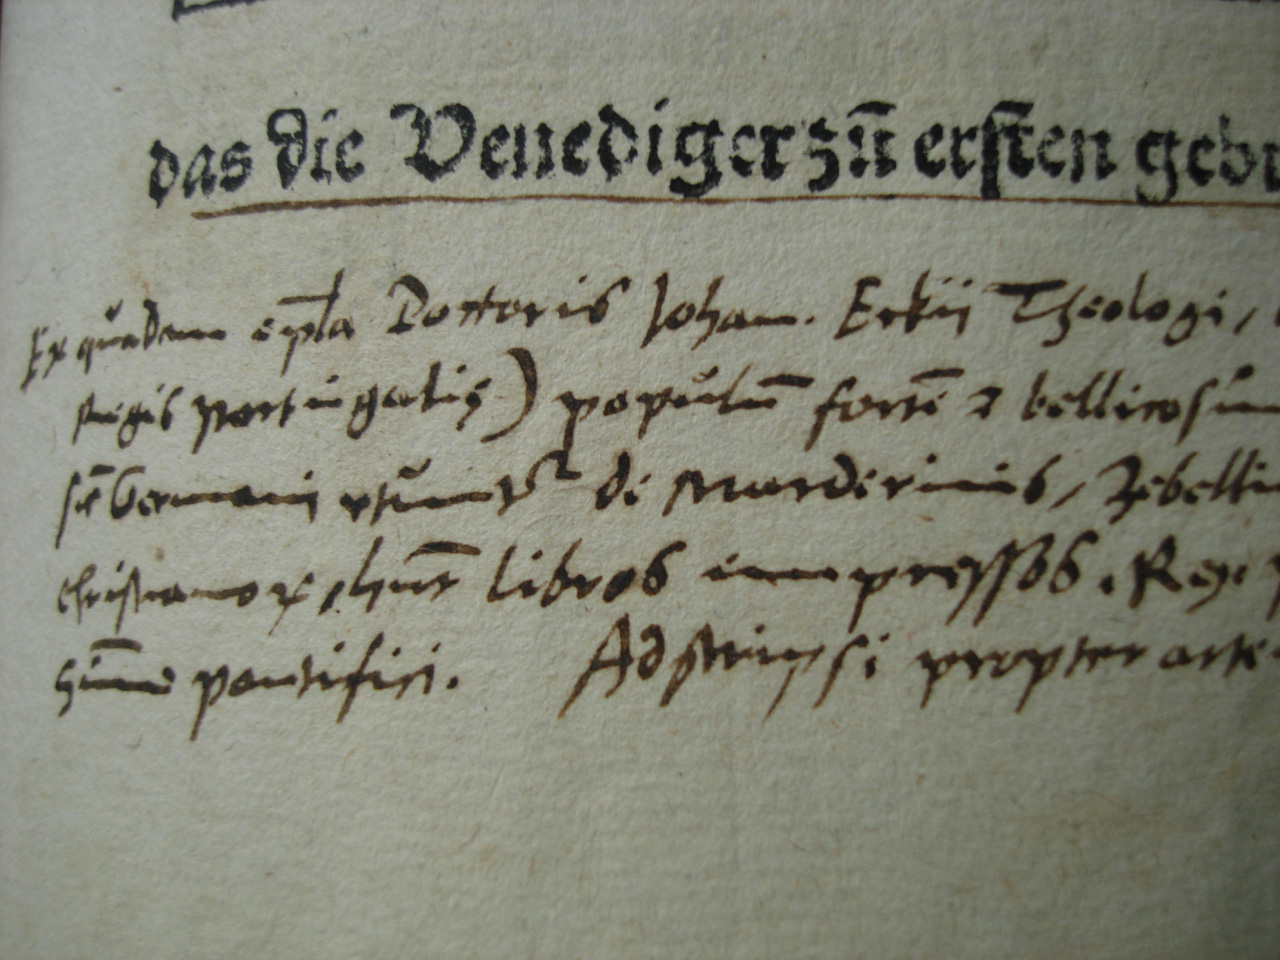 das die Venediger zů erſten gebr
Ex quadam ep̄la Doctoris Johan. Eckii Theologi,
Regis Portugalię) populū fortē & bellicosum
sic Germani utunt᷑ de Marderinis, Zebelli
christianoꝝ, hn̄t libros impressos. Rex
pontifici. Adscripsi propter arte